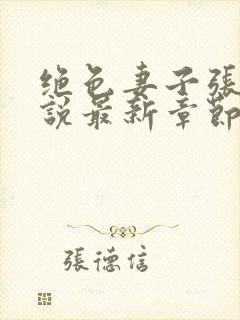 绝色妻子張
說最新章節
張德信